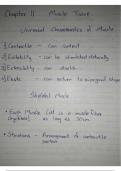 Chapter 11 Muscle Tissue
Universal Characteristics of Muscle
1) Contractile - can contract
2) Excitability - can be stimulated electrically
3) Extensibility - can stretch
4) Elastic - can return to original shape
Skeletal Muscle
• Each Muscle Cell is a muscle fiber
as long as 30cm
• Striations - Arrangement of contractile
proteins